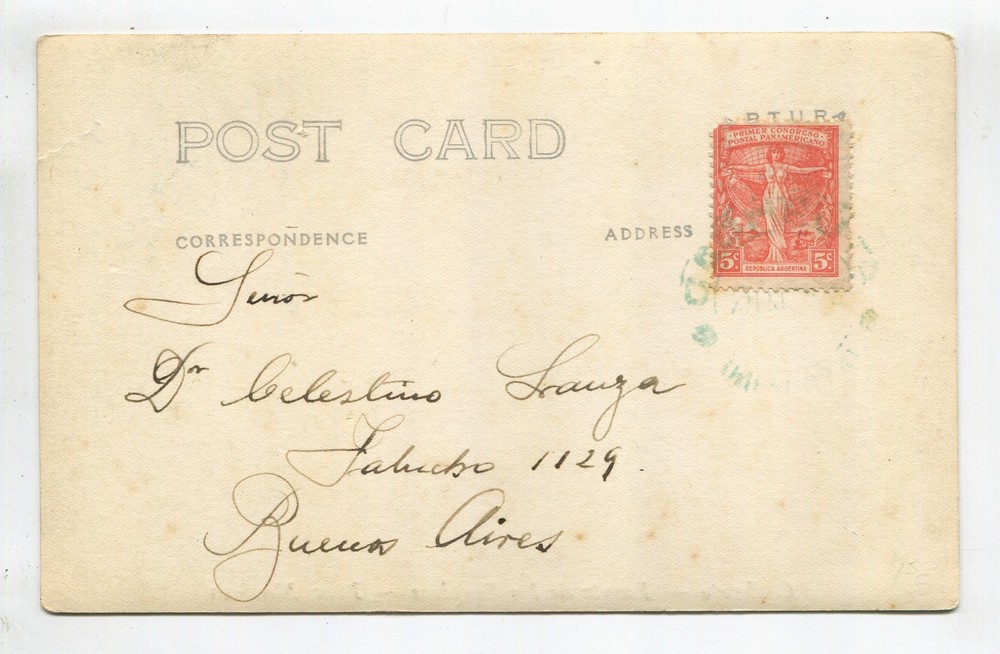 POST CARD
PRIMER CONGRESO
POSTAL PANAMERICANO
5c 5c
REPUBLICA ARGENTINA
CORRESPONDENCE
ADDRESS
Señor
Dr Celestino
1129
Buenos Aires